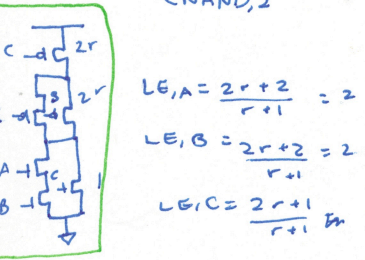 CNAND, 2
C 2r
B 2r
A C 1
B
LE, A = 2r + 2 / r + 1 = 2
LE, B = 2r + 2 / r + 1 = 2
LE, C = 2r + 1 / r + 1